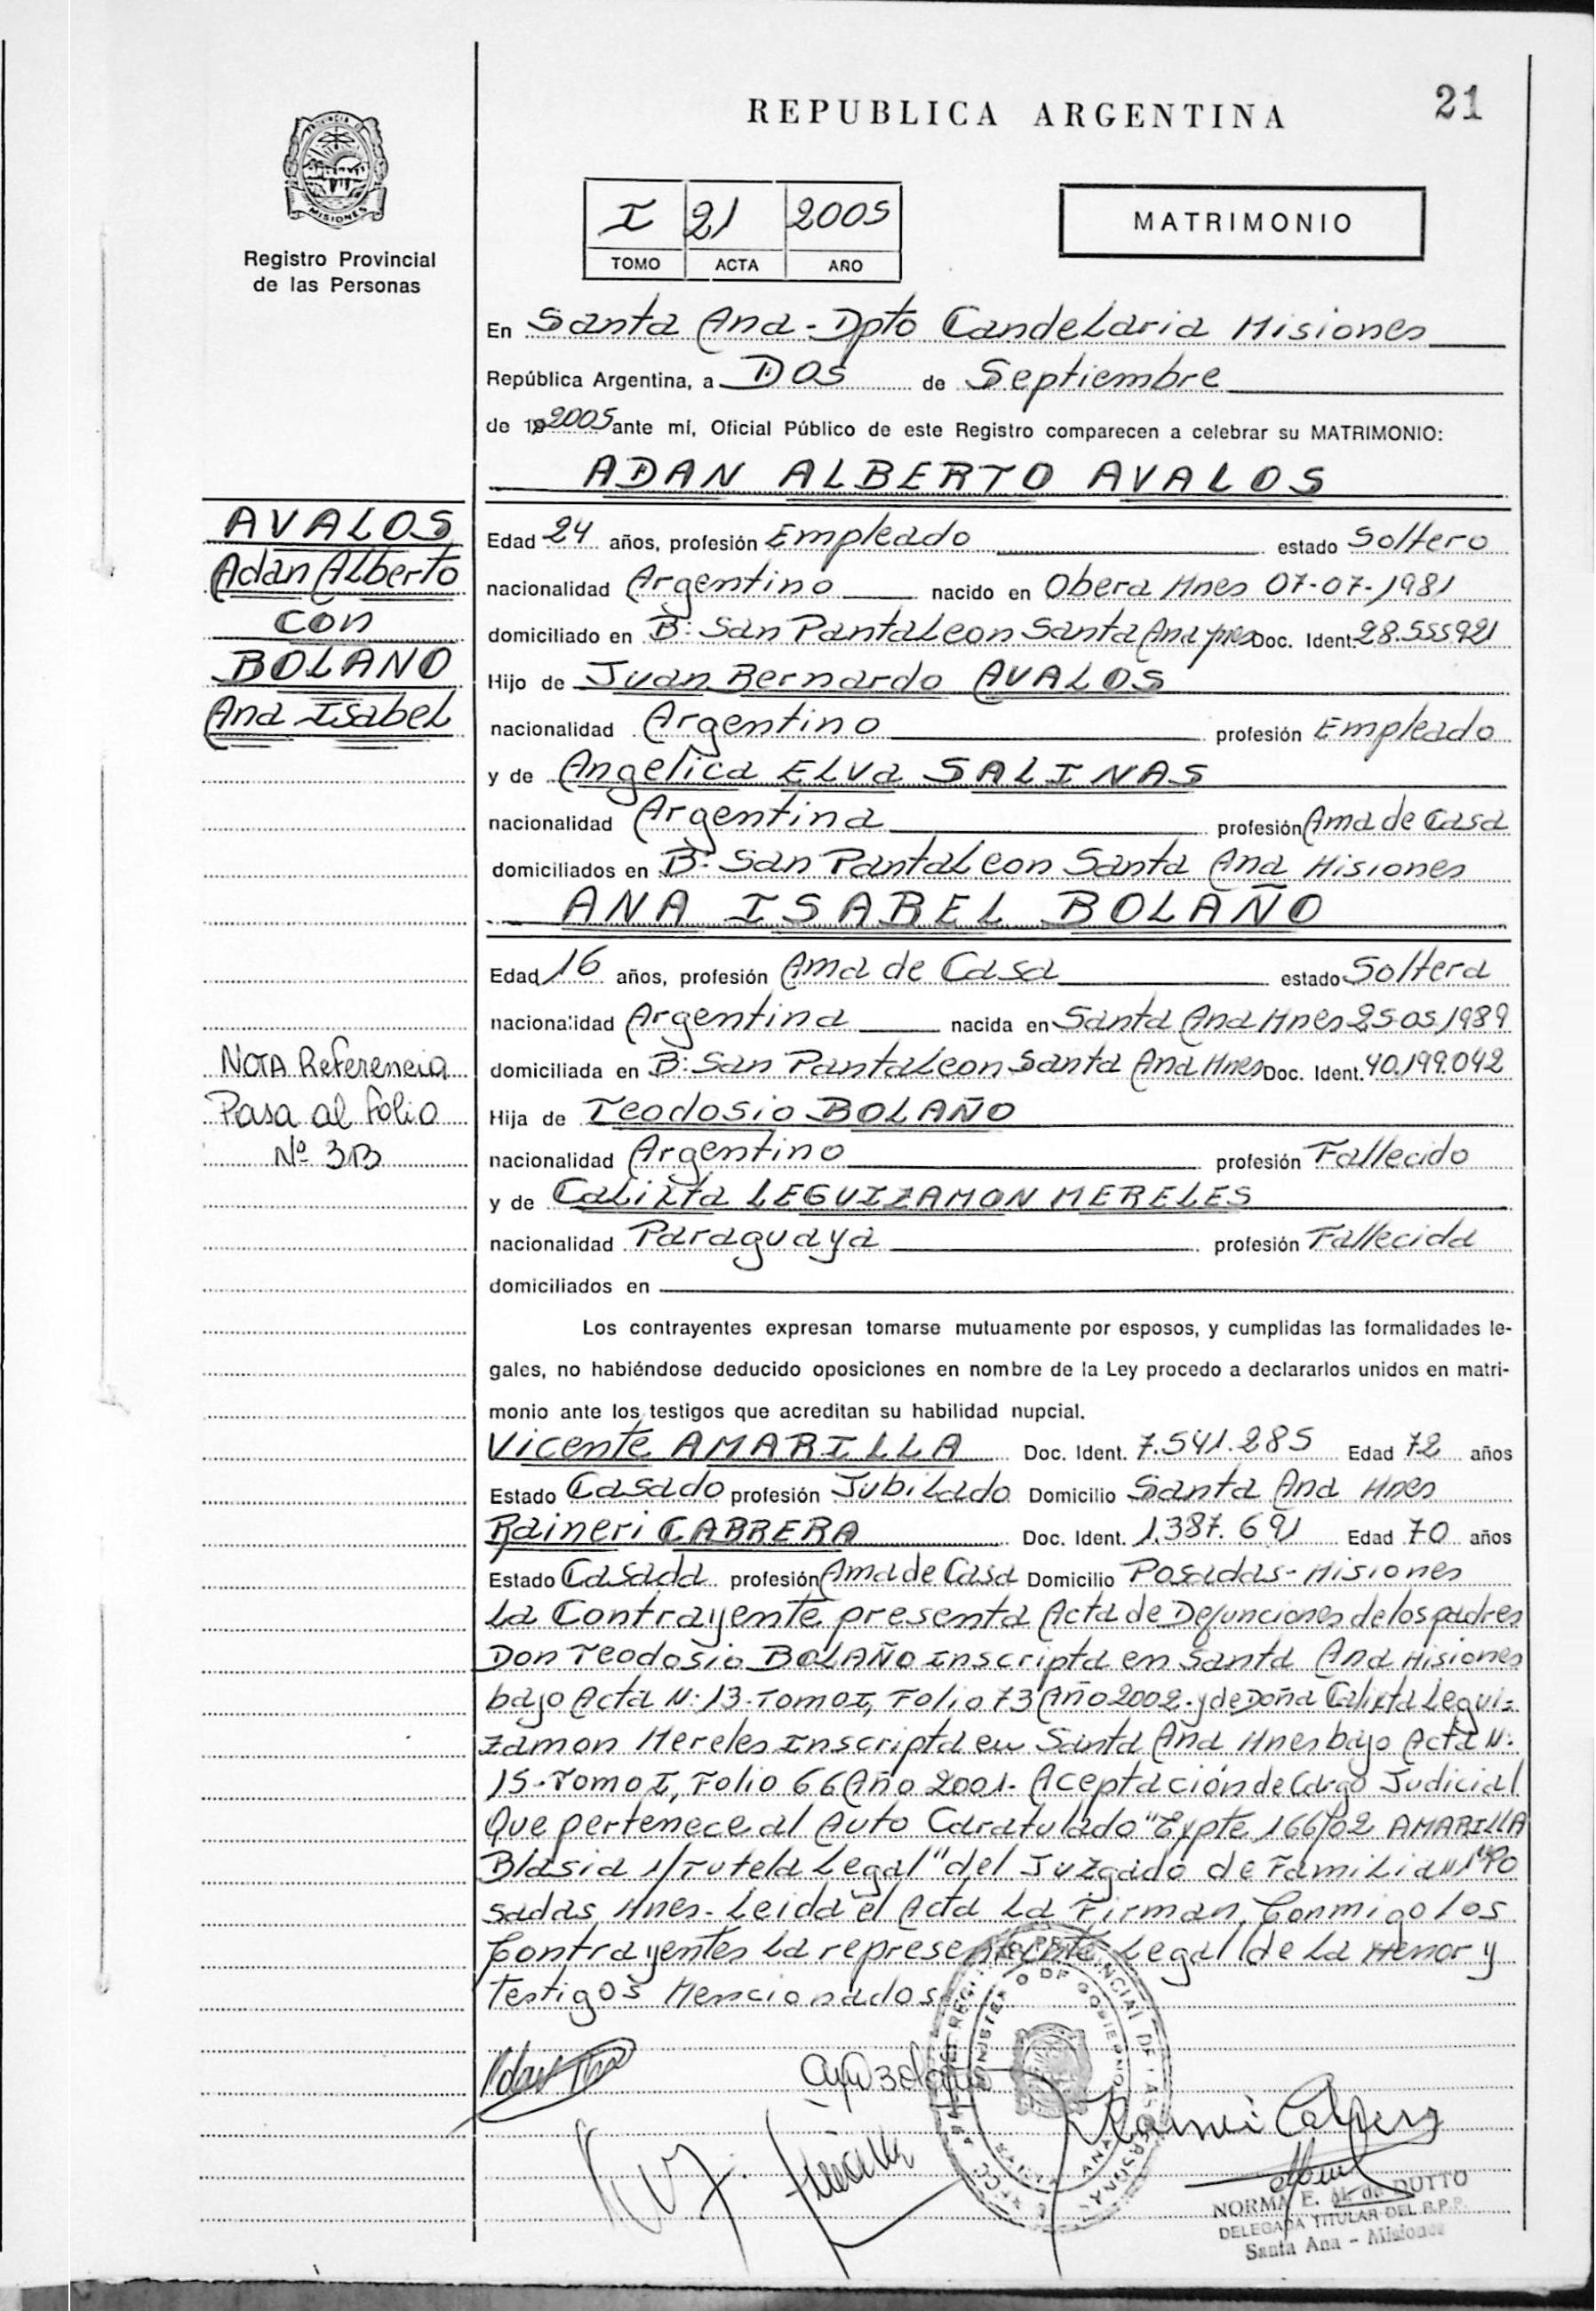 REPUBLICA ARGENTINA
21
PROVINCIA DE
MISIONES
Registro Provincial
de las Personas
I 21 2005
TOMO ACTA AÑO
MATRIMONIO
En Santa Ana - Dpto Candelaria Misiones
República Argentina, a DOS de Septiembre
de 19 2005 ante mí, Oficial Público de este Registro comparecen a celebrar su MATRIMONIO:
ADAN ALBERTO AVALOS
AVALOS
Adan Alberto
con
BOLANO
Ana Isabel
Edad 24 años, profesión Empleado estado Soltero
nacionalidad Argentino nacido en Obera Mnes 07-07-1981
domiciliado en B: San Pantaleon Santa Ana Mnes Doc. Ident. 28.555921
Hijo de Juan Bernardo AVALOS
nacionalidad Argentino profesión Empleado
y de Angelica ELVA SALINAS
nacionalidad Argentina profesión Ama de Casa
domiciliados en B: San Pantaleon Santa Ana Misiones
ANA ISABEL BOLAÑO
Edad 16 años, profesión Ama de Casa estado Soltera
nacionalidad Argentina nacida en Santa Ana Mnes 25-05-1989
domiciliada en B: San Pantaleon Santa Ana Mnes Doc. Ident. 40.199.042
Hija de Teodosio BOLAÑO
nacionalidad Argentino profesión Fallecido
y de Calixta LEGUIZAMON MERELES
nacionalidad Paraguaya profesión Fallecida
domiciliados en
NOTA Referencia
Pasa al folio
Nº 3B
Los contrayentes expresan tomarse mutuamente por esposos, y cumplidas las formalidades le-
gales, no habiéndose deducido oposiciones en nombre de la Ley procedo a declararlos unidos en matri-
monio ante los testigos que acreditan su habilidad nupcial.
Vicente AMARILLA Doc. Ident. 7.541.285 Edad 72 años
Estado Casado profesión Jubilado Domicilio Santa Ana Mnes
Raineri CABRERA Doc. Ident. 1.387.691 Edad 70 años
Estado Casada profesión Ama de Casa Domicilio Posadas - Misiones
La Contrayente presenta Acta de Defunciones de los padres
Don Teodosio BOLAÑO Inscripta en Santa Ana Misiones
bajo Acta N: 13-Tomo I, Folio 73 Año 2002. y de Doña Calixta Legui-
zamon Mereles Inscripta en Santa Ana Mnes bajo Acta N:
15-Tomo I, Folio 66 Año 2001. Aceptación de Cargo Judicial
Que pertenece al Auto Caratulado "Expte 166/02 AMARILLA
Blasia s/Tutela Legal" del Juzgado de Familia Nº1 Po
sadas Mnes- Leida el Acta La Firman, Conmigo los
Contrayentes La representante Legal de La Menor y
Testigos Mencionados
NORMA E. M. de DUTTO
DELEGADA TITULAR DEL R.P.P.
Santa Ana - Misiones